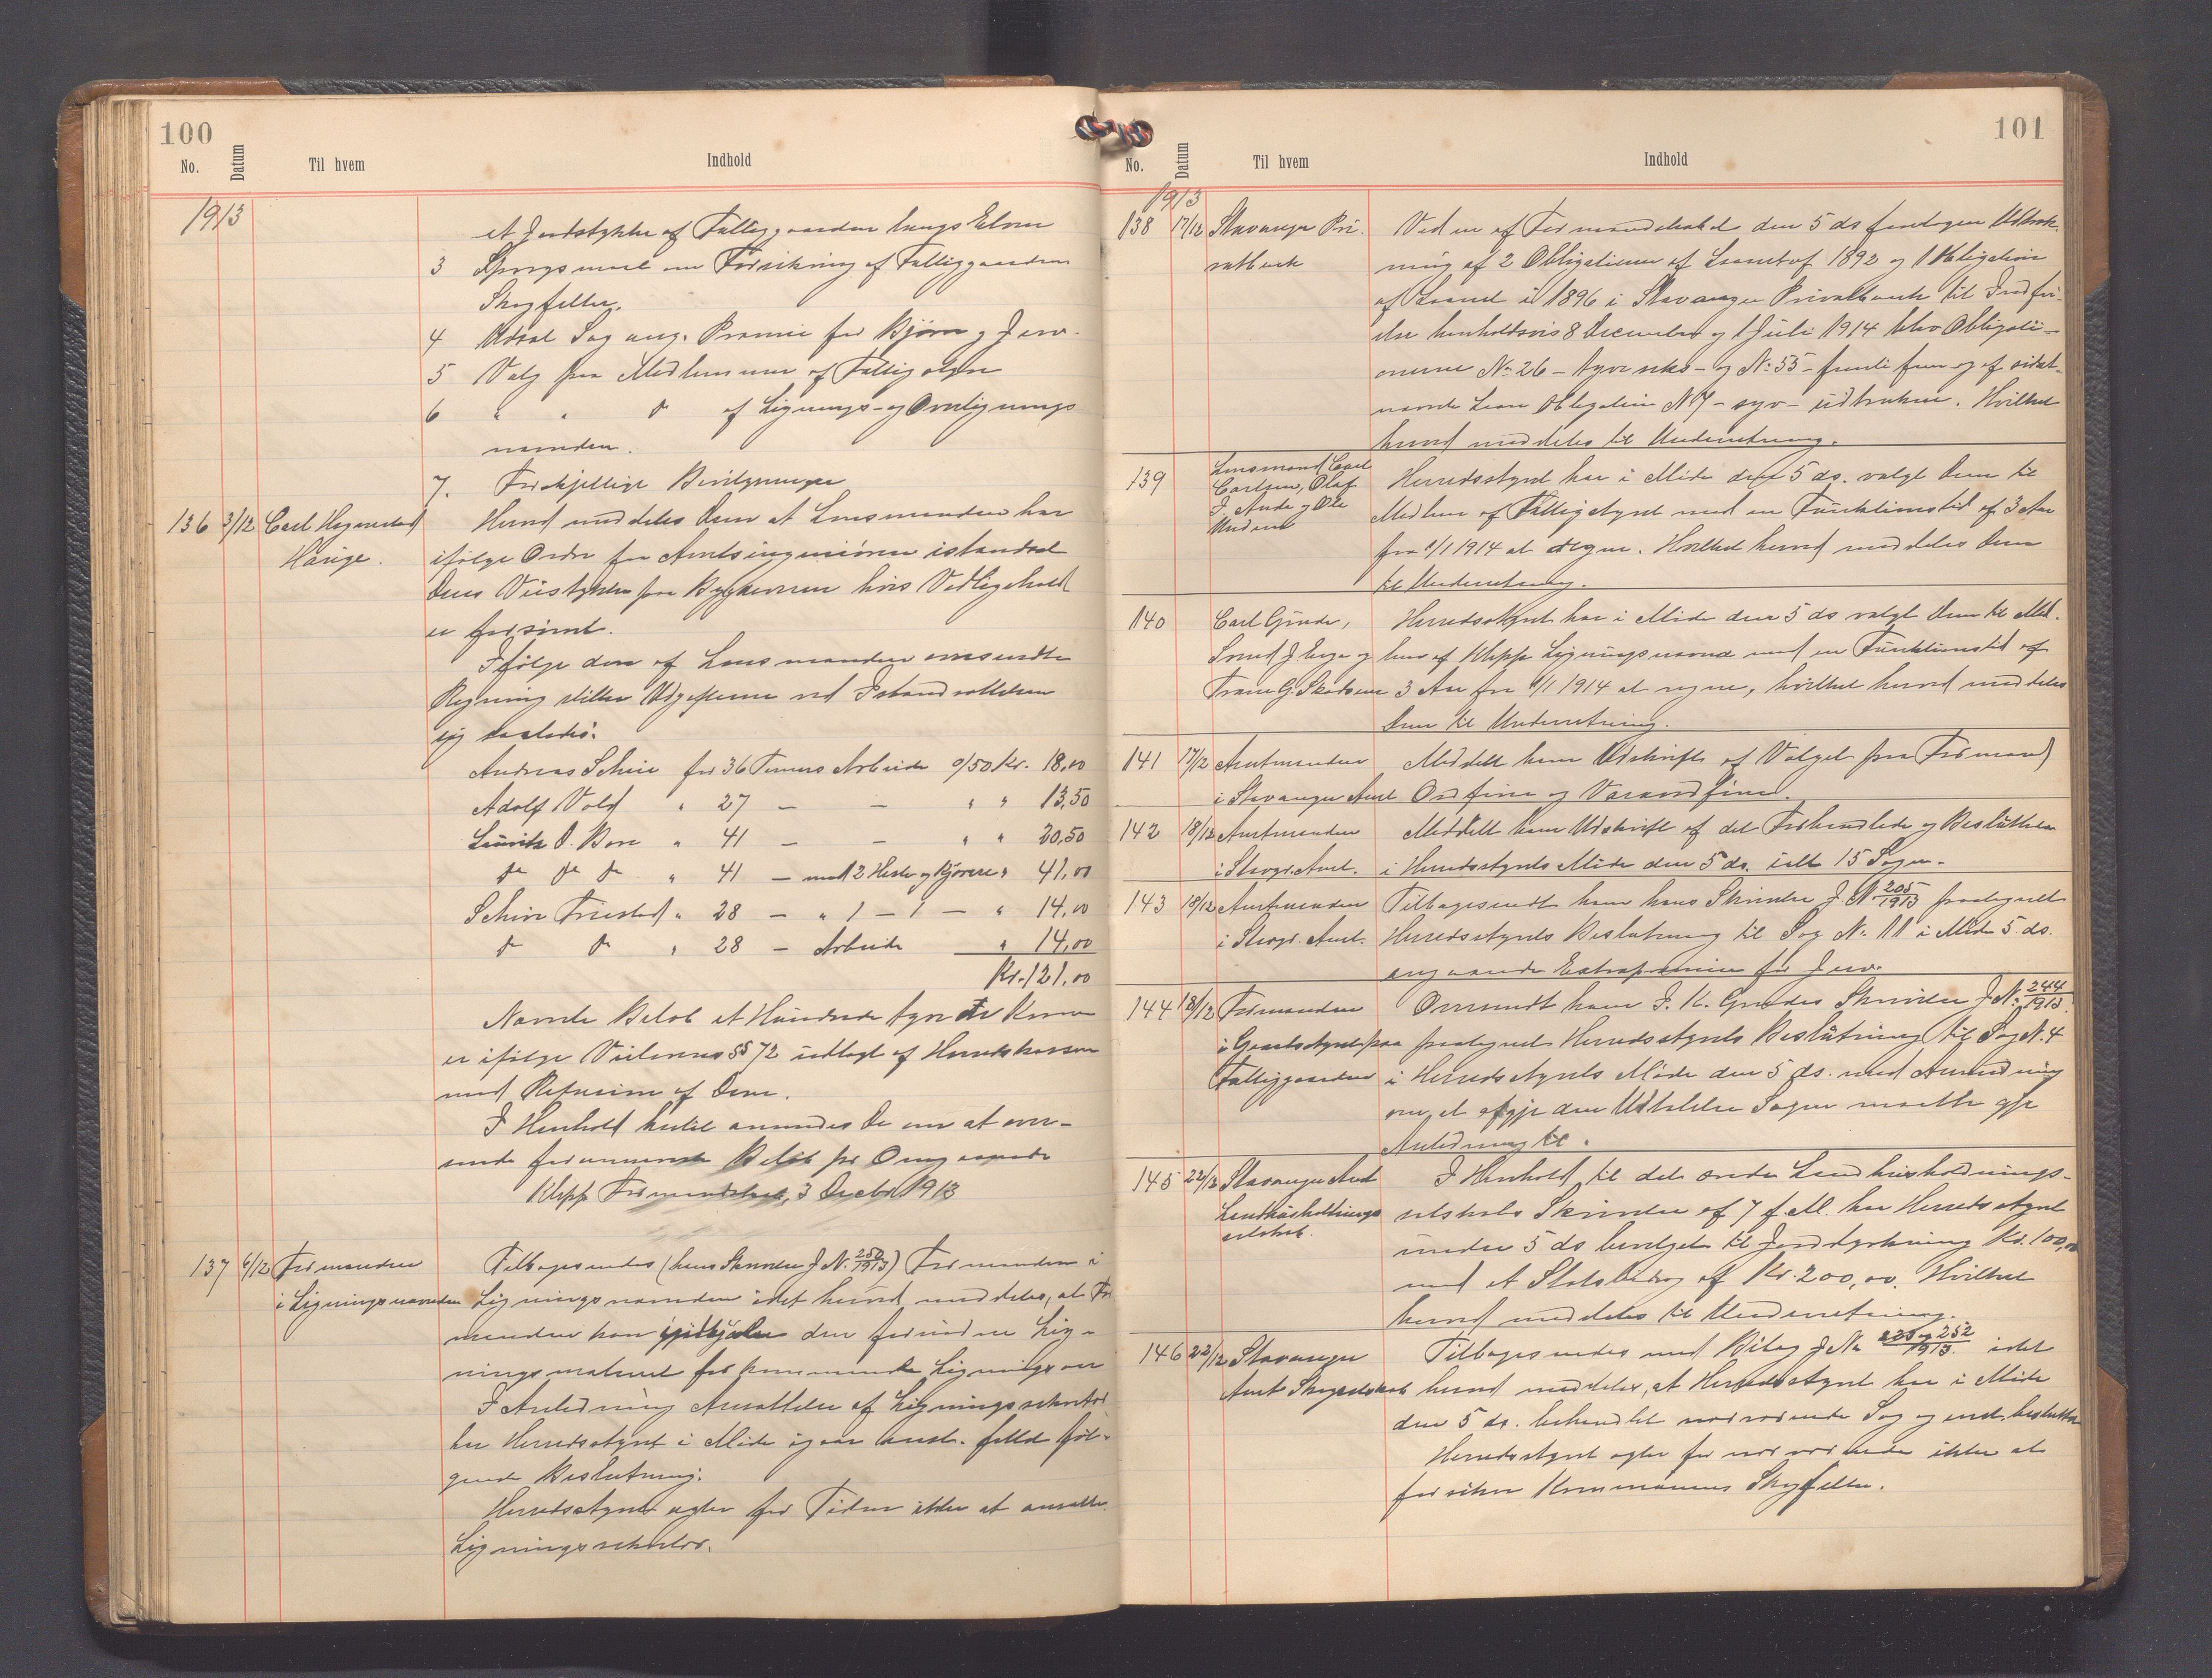 100
No. Datum Til hvem Indhold
1913
et Jordstykke af Fattiggaarden langs Elven
3 Spørgsmaal om Forsikring af Fattiggaardens
Skogfelter.
4 Udsat Sag ang. Præmie for Bjørn og Jerv.
5 Valg paa Medlemmer af Fattigstyre
6 " " do af Lignings- og Overlignings
nævnden.
7. Forskjellige Bevilgninger
136 3/12 Carl Hognestad
Hauge.
Herved meddeles Dem at Lensmanden har
ifølge Ordre fra Amtsingeniøren istandsat
Deres Veistykke paa hvis Vedligehold
er forsømt.
Ifølge den af Lensmanden omsendte
Regning stiller Udgifterne ved Istandsættelsen
sig saaledes:
Andreas Schiie for 36 Timers Arbeide o/50 Kr. 18,00
Adolf Vold " 27 — — " " 13,50
Lauritz O. Bore " 41 — — " " 20,50
do do do " 41 — med 2 Heste og Kjørere " 41,00
Schive Friestad " 28 — " 1 — 1 — " 14,00
do do " 28 — Arbeide " 14,00
Kr. 121,00
Nævnte Beløb et Hundrede tyve et Kroner
er ifølge Veilovens §§ 72 udlagt af Herredskassen
med Refusion af Dem.
I Henhold hertil anmodes De om at over-
sende forannævnte Beløb pr Omgaaende
Klepp Formandskab, 3 Decbr 1913
137 6/12 Formanden
i Ligningsnævnden
Tilbagesendes (hans Skrivelse J. N. 250/1913) Formanden i
Ligningsnævnden idet herved meddeles, at For
manden kan den foruden Lig-
nings materiel for kommende Ligningsaar
I Anledning Ansættelse af Ligningssekretær
har Herredsstyret i Møde igaar enst. fattet føl-
gende Beslutning:
Herredsstyret agter for Tiden ikke at ansætte
Ligningssekretær.
101
No. Datum Til hvem Indhold
1913
138 17/12 Stavanger Pri-
vatbank
Ved en af Formandskabet den 5 ds foretagen Udtræk-
ning af 2 Obligationer af Laanet af 1892 og 1 Obligation
af Laanet i 1896 i Stavanger Privatbank til Indfri-
else henholdsvis 8 December og 1 Juli 1914 blev Obligati-
onerne No 26 – tyve seks – og No 55 – femti fem og af sidst-
nævnte Laan Obligation N 7 – syv – udtrukne. Hvilket
herved meddeles til Underretning.
139 Lensmand Carl
Carlsen, Olaf
J. Aude og Ole
Undem
Herredsstyret har i Møde den 5 ds. valgt Dem til
Medlem af Fattigstyret med en Funktionstid af 3 Aar
fra 1/1 1914 at regne. Hvilket herved meddeles Dem
til Underretning.
140 Carl Grude,
Svend J. Erga og
Trane G. Skadsem
Herredsstyret har i Møde den 5 ds valgt Dem til Med-
lem af Klepp Ligningsnævnd med en Funktionstid af
3 Aar fra 1/1 1914 at regne, hvilket herved meddeles
Dem til Underretning.
141 17/12 Amtmanden
i Stavanger Amt
Meddelt ham Udskrift af Valget paa Formand
Ordfører og Varaordfører.
142 18/12 Amtmanden
i Stvgr. Amt.
Meddelt ham Udskrift af det Forhandlede og Besluttede
i Herredsstyrets Møde den 5 ds. ialt 15 Sager.
143 18/12 Amtmanden
i Stvgr. Amt.
Tilbagesendt ham hans Skrivelse J. N 205/1913 paategnet
Herredsstyrets Beslutning til Sag No 11 i Møde 5 ds.
angaaende Extrapræmie for Jerv.
144 18/12 Formanden
i Gaardsstyret paa
Fattiggaarden
Oversendt ham J. K. Grudes Skrivelse J. N. 244/1913.
paategnet Herredsstyrets Beslutning til Sag N. 4
i Herredsstyrets Møde den 5 ds. med Anmodning
om at afgi den Udtalelse Sagen maatte gje
Anledning til.
145 22/12 Stavanger Amt
Landhusholdnings
selskab.
I Henhold til det ærede Landhusholdnings-
selskabs Skrivelse af 7 f.M. har Herredsstyret
under 5 ds bevilget til Jorddyrkning Kr. 100,00
med et Statsbidrag af Kr. 200,00. Hvilket
herved meddeles til Underretning.
146 22/12 Stavanger
Amt Skogselskab
Tilbagesendes med Bilag J. No 235 og 252/1913. idet
herved meddeles, at Herredsstyret har i Møde
den 5 ds. behandlet nærværende Sag og enst. besluttet
Herredsstyret agter for nærværende ikke at
forsikre Kommunens Skogfelter.